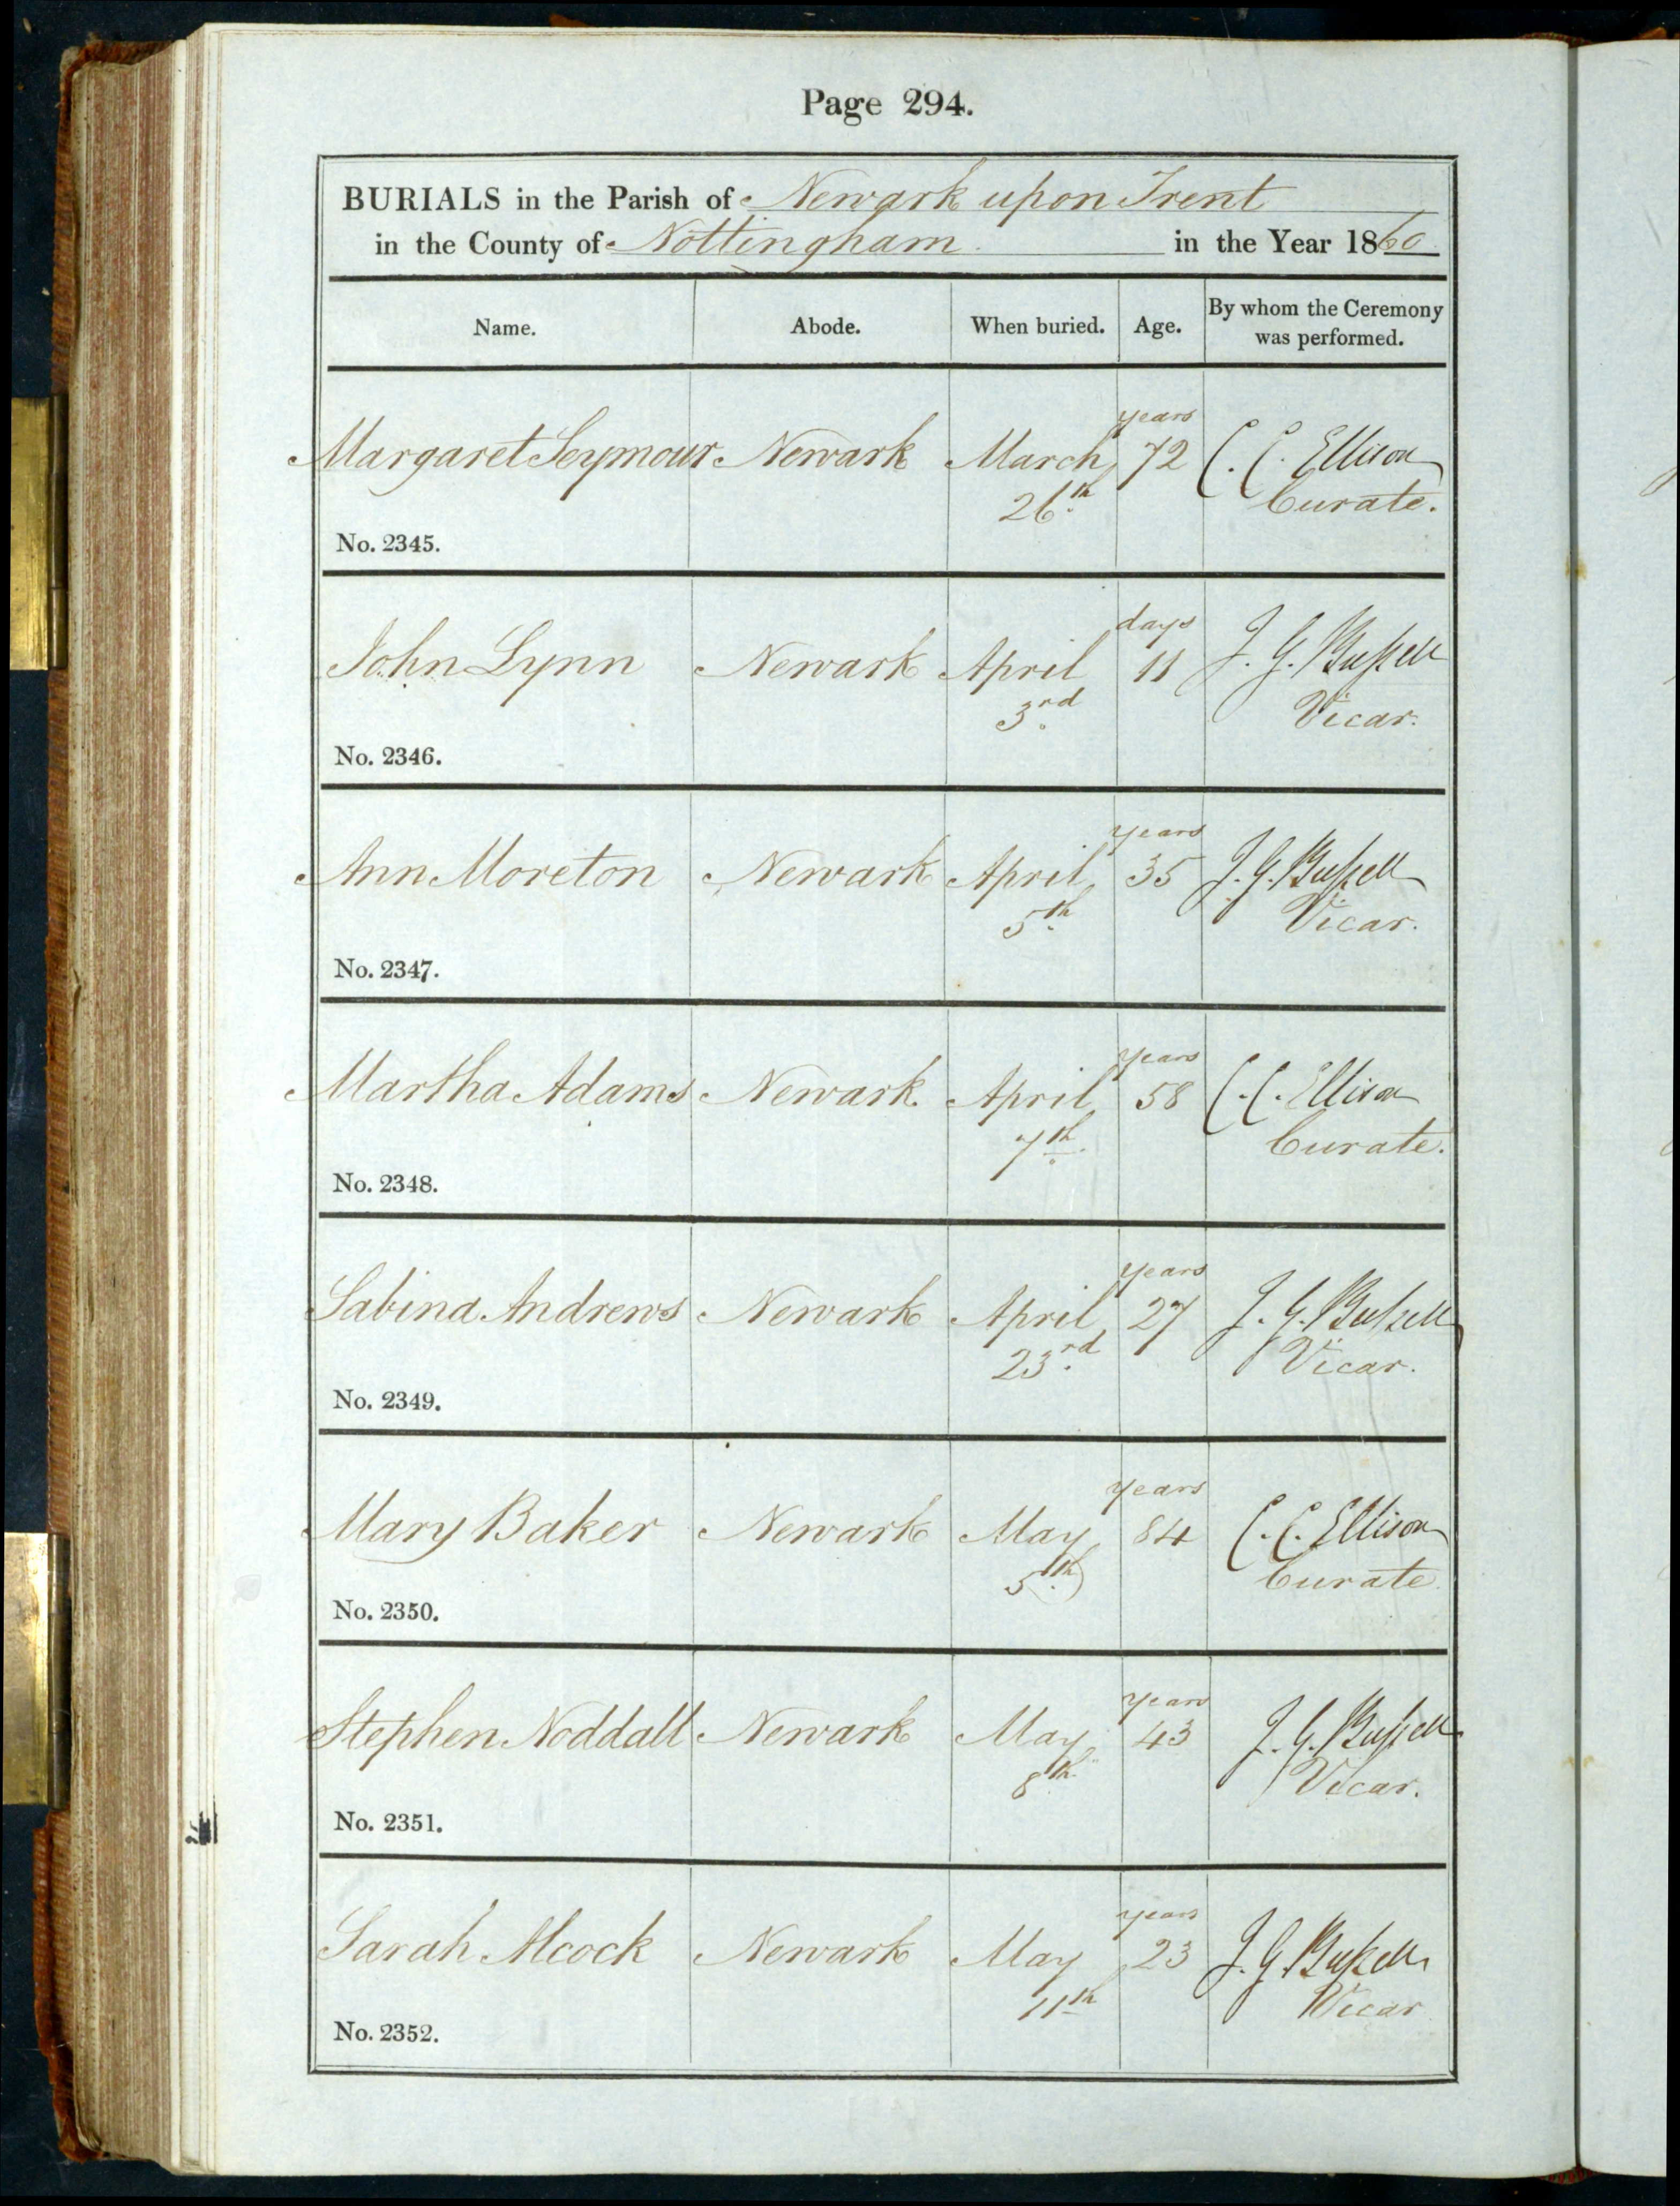 Page 294.
BURIALS in the Parish of Newark upon Trent
in the County of Nottingham in the Year 1860
Name. Abode. When buried. Age. By whom the Ceremony was performed.
years
Margaret Seymour Newark March 72 C. C. Ellison
26th Curate.
No. 2345.
days
John Lynn Newark April 11 J. G. Bussell
3rd Vicar.
No. 2346.
years
Ann Moreton Newark April 35 J. G. Bussell
5th Vicar.
No. 2347.
years
Martha Adams Newark April 58 C. C. Ellison
7th Curate.
No. 2348.
years
Sabina Andrews Newark April 27 J. G. Bussell
23rd Vicar.
No. 2349.
years
Mary Baker Newark May 84 C. C. Ellison
5th Curate
No. 2350.
years
Stephen Noddall Newark May 43 J. G. Bussell
8th Vicar.
No. 2351.
years
Sarah Alcock Newark May 23 J. G. Bussell
11th Vicar
No. 2352.